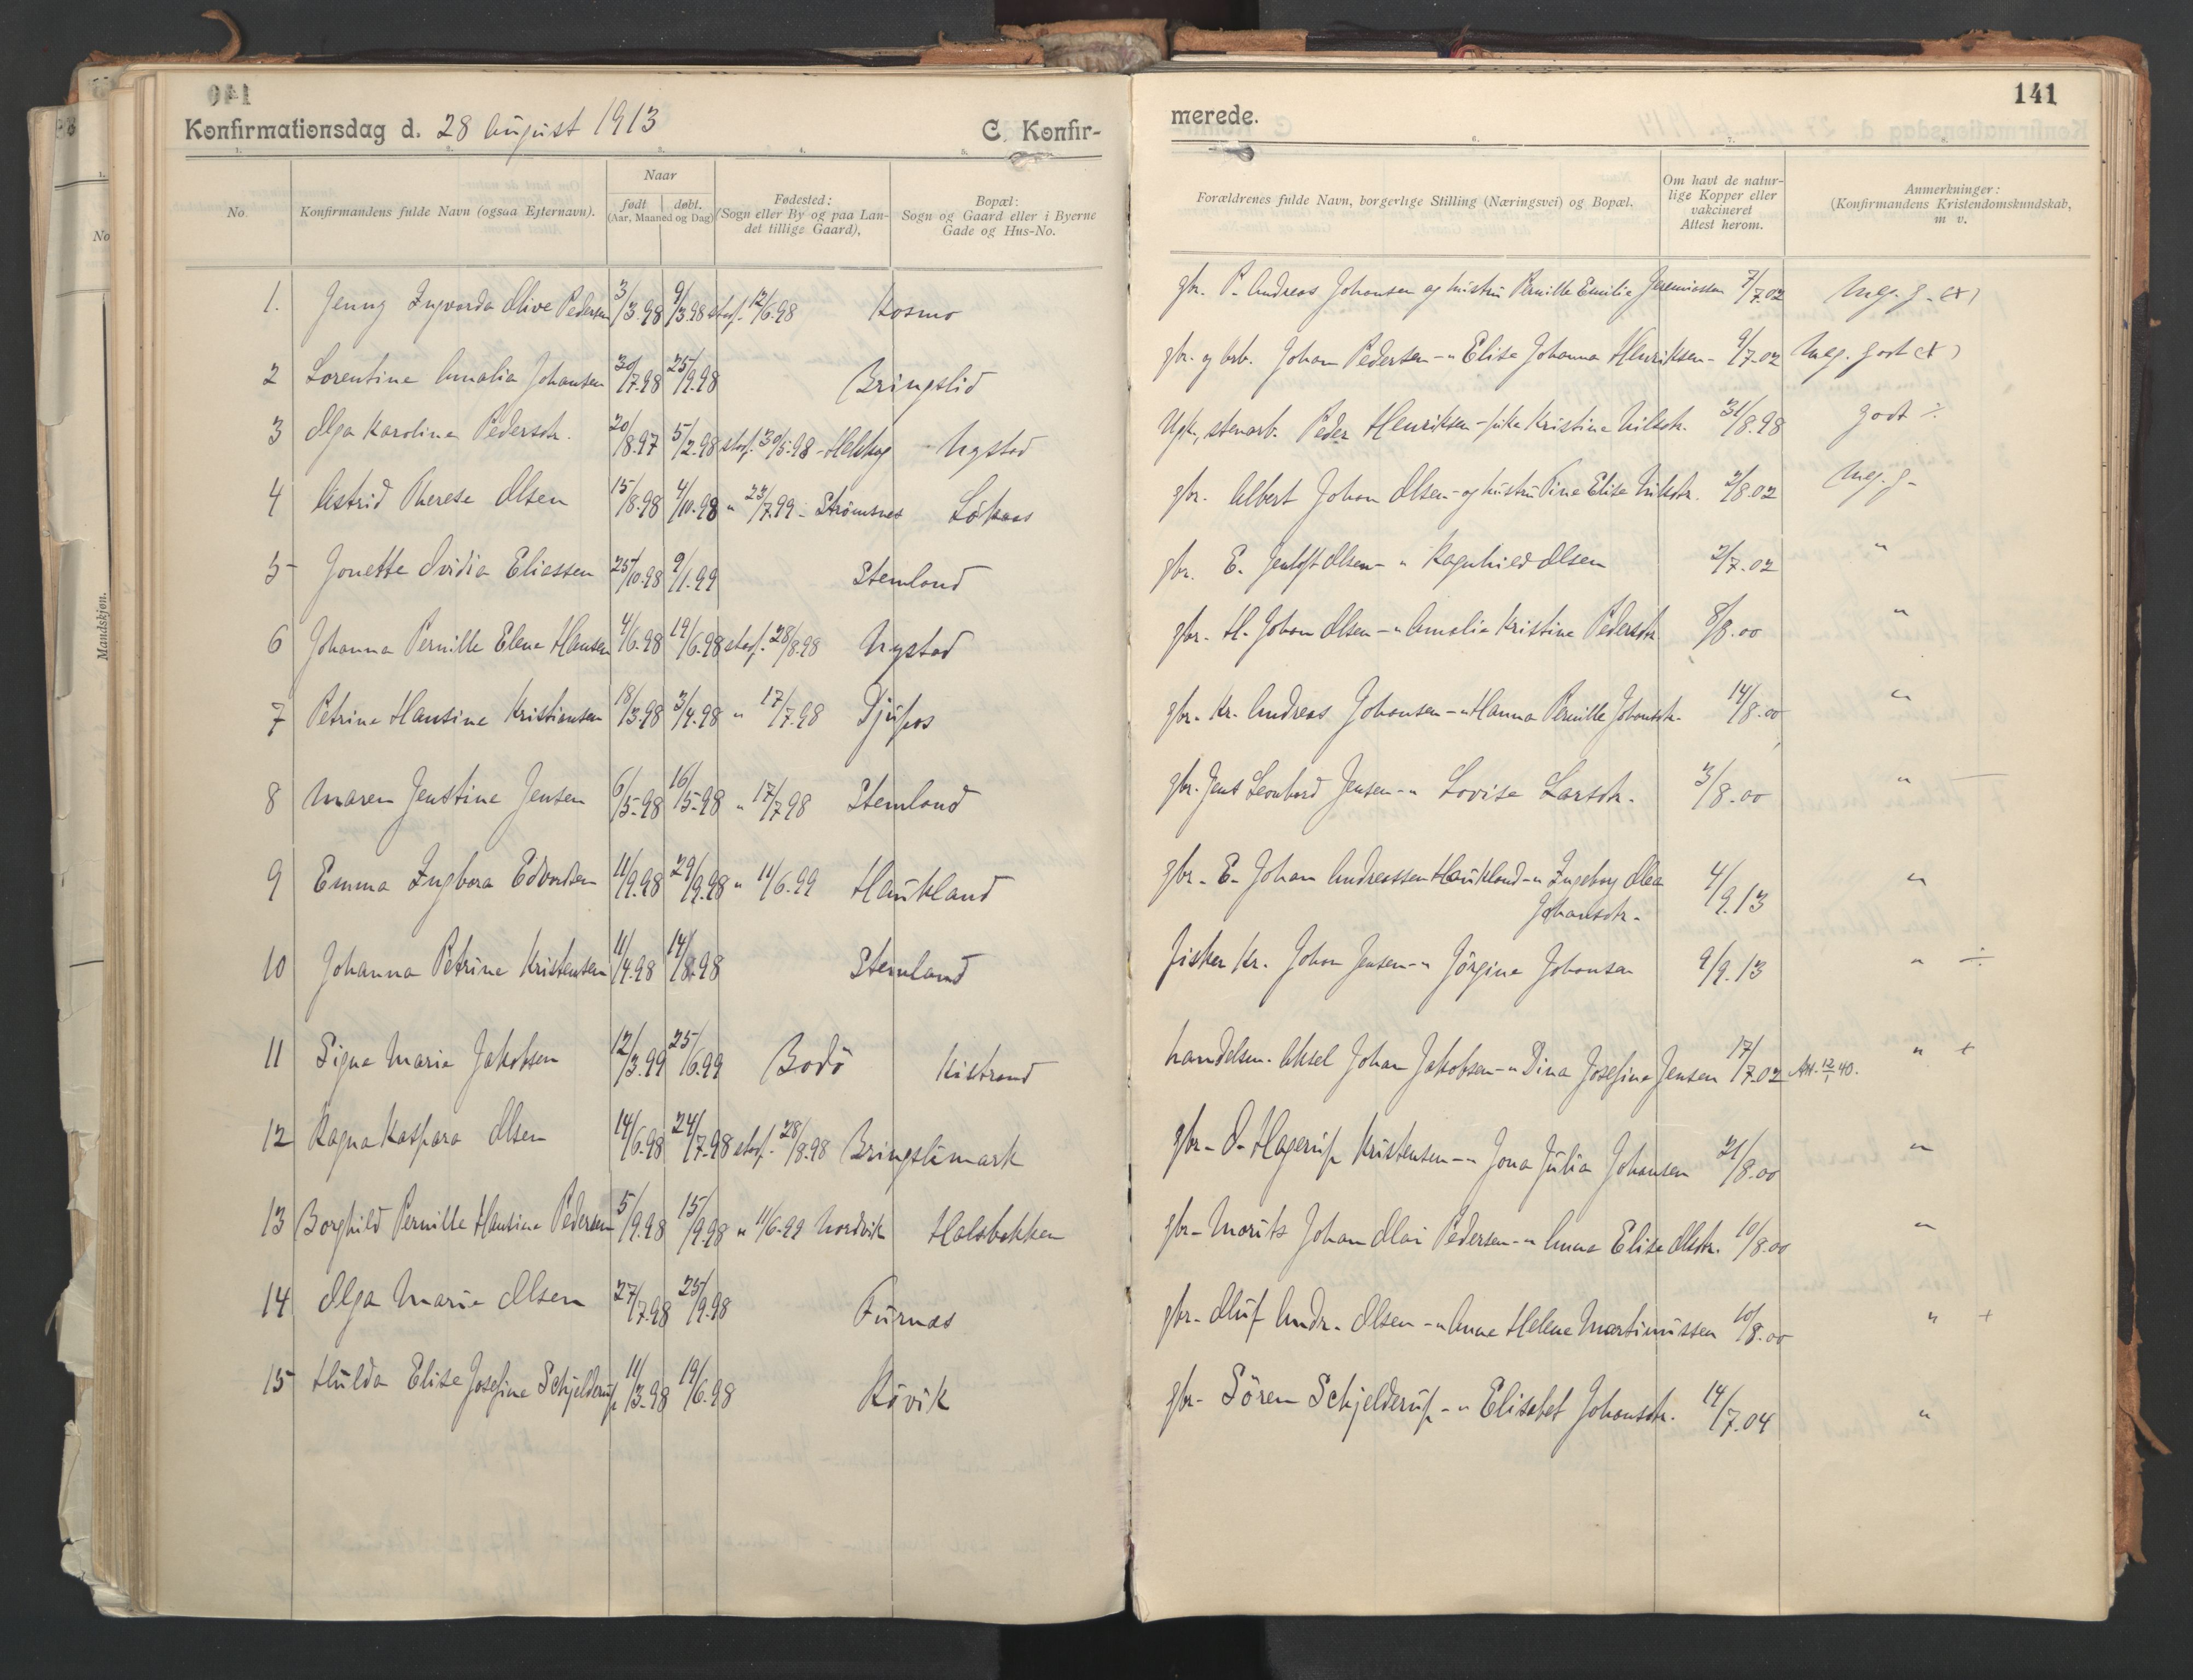 140
Konfirmationsdag d. 28 August 1913
C. Konfir-
1. 2. 3. 4. 5.
No.
Konfirmandens fulde Navn (ogsaa Efternavn).
Naar
født døbt.
(Aar, Maaned og Dag)
Fødested:
(Sogn eller By og paa Lan-
det tillige Gaard),
Bopæl:
Sogn og Gaard eller i Byerne
Gade og Hus-No.
1. Jenny Ingvarda Olive Pedersen 3/3.98 9/3.98 stadf. 12/6.98 Kosmo
2 Lorentine Amalia Johansen 30/7.98 25/9.98 Bringslid
3 Olga Karoline Pedersdtr. 20/8.97 5/2.98 stadf. 30/5.98 - Nystad
4 Astrid Therese Olsen 15/8.98 4/10.98 " 23/7.99 - Strømsnes Løkaas
5 Jonette Ovidia Eliassen 25/10.98 9/1.99 Stemland
6 Johanna Pernille Elena Hansen 4/6.98 19/6.98 stadf. 28/8.98 Nystad
7 Petrine Hansine Kristiansen 18/3.98 3/4.98 " 17/7.98 Djupos
8 Maren Jenstine Jensen 6/5.98 16/5.98 " 17/7.98 Stemland
9 Emma Ingbora Edvardsen 11/9.98 29/9.98 " 11/6.99 Haukland
10 Johanna Petrine Kristensen 11/4.98 14/8.98 Stemland
11 Signe Marie Jakobsen 12/3.99 25/6.99 Bodö Kistrand
12 Ragna Kaspara Olsen 14/6.98 24/7.98 stadf. 28/8.98 Bringslimark
13 Borghild Pernille Hansine Pedersen 5/9.98 15/9.98 " 11/6.99 Nordvik Halsbakken
14 Olga Marie Olsen 27/7.98 25/9.98 Furnes
15 Hulda Elise Josefine Schjelderup 11/3.98 19/6.98 Kövik
No
Mandskjøn.
141
merede.
6. 7. 8.
Forældrenes fulde Navn, borgerlige Stilling (Næringsvei) og Bopæl.
Om havt de natur-
lige Kopper eller
vakcineret
Attest herom.
Anmerkninger:
(Konfirmandens Kristendomskundskab,
m v.
gbr. P. Andreas Johansen og hustru Pernille Emilie Jeremiassen 7/7.02 Meg. g. (+)
gbr. og arb. Johan Pedersen - " Elise Johanna Henriksen - 9/7.02 Meg. godt (+)
Ugk., stenarb. Peder Henriksen - pike Kristine Nilsdtr. 31/8.98 godt ÷
gbr. Albert Johan Olsen - og hustru Pine Elise Nilsdtr. 2/8.02 Meg. g -
gbr. E. Jentoft Olsen - " Ragnhild Olsen 2/7.02 "
gbr. H. Johan Olsen - " Amalie Kristine Pedersdtr 8/8.00 "
gbr. Kr. Andreas Johansen - " Hanna Pernille Johansdtr. 14/8.00 "
gbr. Jens Leonhard Jensen - " Lovise Larsdtr. 3/8.00 " —
gbr. E. Johan Andreassen Haukland - " Ingeborg Olea
Johansdtr. 4/9.13 "
fisker Kr. Johan Jensen - " Jörgine Johansen 9/9.13 " ÷
handelsm. Aksel Johan Jakobsen - " Dina Josefine Jensen 17/7.02 Att. 12/1 40. " +
gbr. O. Hagerup Kristensen - " Jona Julia Johansen 21/8.00 "
gbr. Morits Johan Olai Pedersen - " Anna Elise Olsdtr. 10/8.00 "
gbr. Oluf Andr. Olsen - " Anne Helene Martinussen 10/8.00 " +
gbr. Sören Schjelderup - " Elisabet Johansdtr. 14/7.04 "